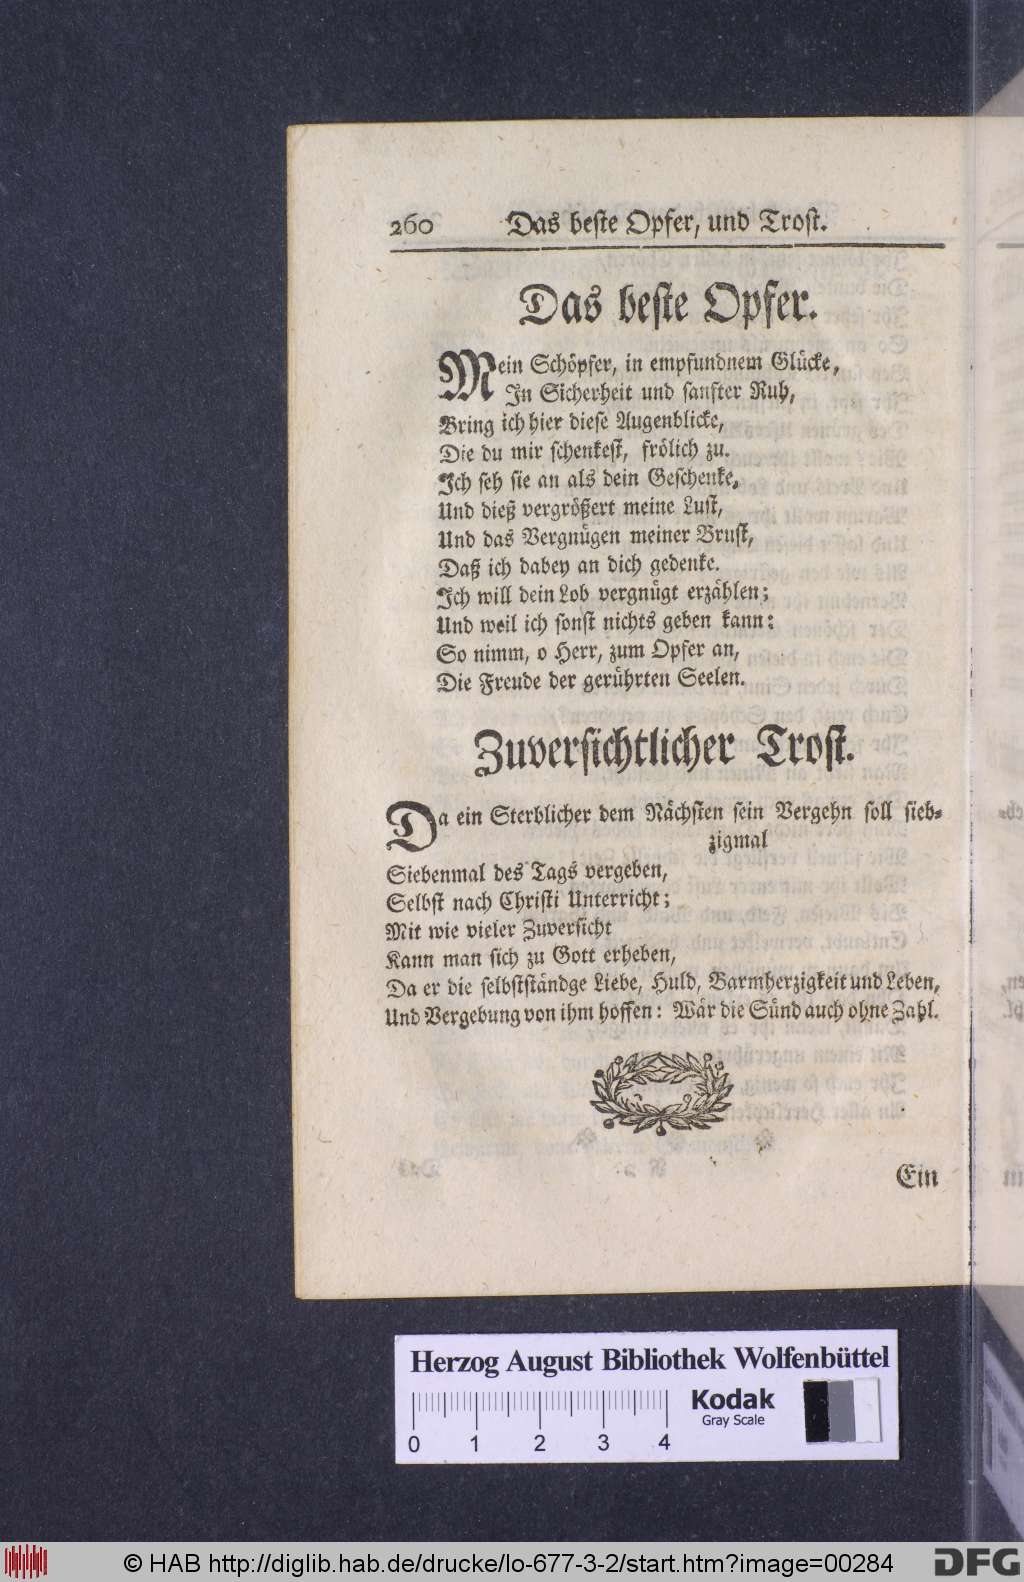 260 Das beste Opfer, und Trost.
Das beste Opfer.
Mein Schöpfer, in empfundnem Glücke,
In Sicherheit und sanfter Ruh,
Bring ich hier diese Augenblicke,
Die du mir schenkest, frölich zu.
Ich seh sie an als dein Geschenke,
Und dieß vergrößert meine Lust,
Und das Vergnügen meiner Brust,
Daß ich dabey an dich gedenke.
Ich will dein Lob vergnügt erzählen;
Und weil ich sonst nichts geben kann:
So nimm, o Herr, zum Opfer an,
Die Freude der gerührten Seelen.
Zuversichtlicher Trost.
Da ein Sterblicher dem Nächsten sein Vergehn soll sieb-
zigmal
Siebenmal des Tags vergeben,
Selbst nach Christi Unterricht;
Mit wie vieler Zuversicht
Kann man sich zu Gott erheben,
Da er die selbstständge Liebe, Huld, Barmherzigkeit und Leben,
Und Vergebung von ihm hoffen: Wär die Sünd auch ohne Zahl.
Ein
Herzog August Bibliothek Wolfenbüttel
Kodak
Gray Scale
0 1 2 3 4
© HAB http://diglib.hab.de/drucke/lo-677-3-2/start.htm?image=00284
DFG